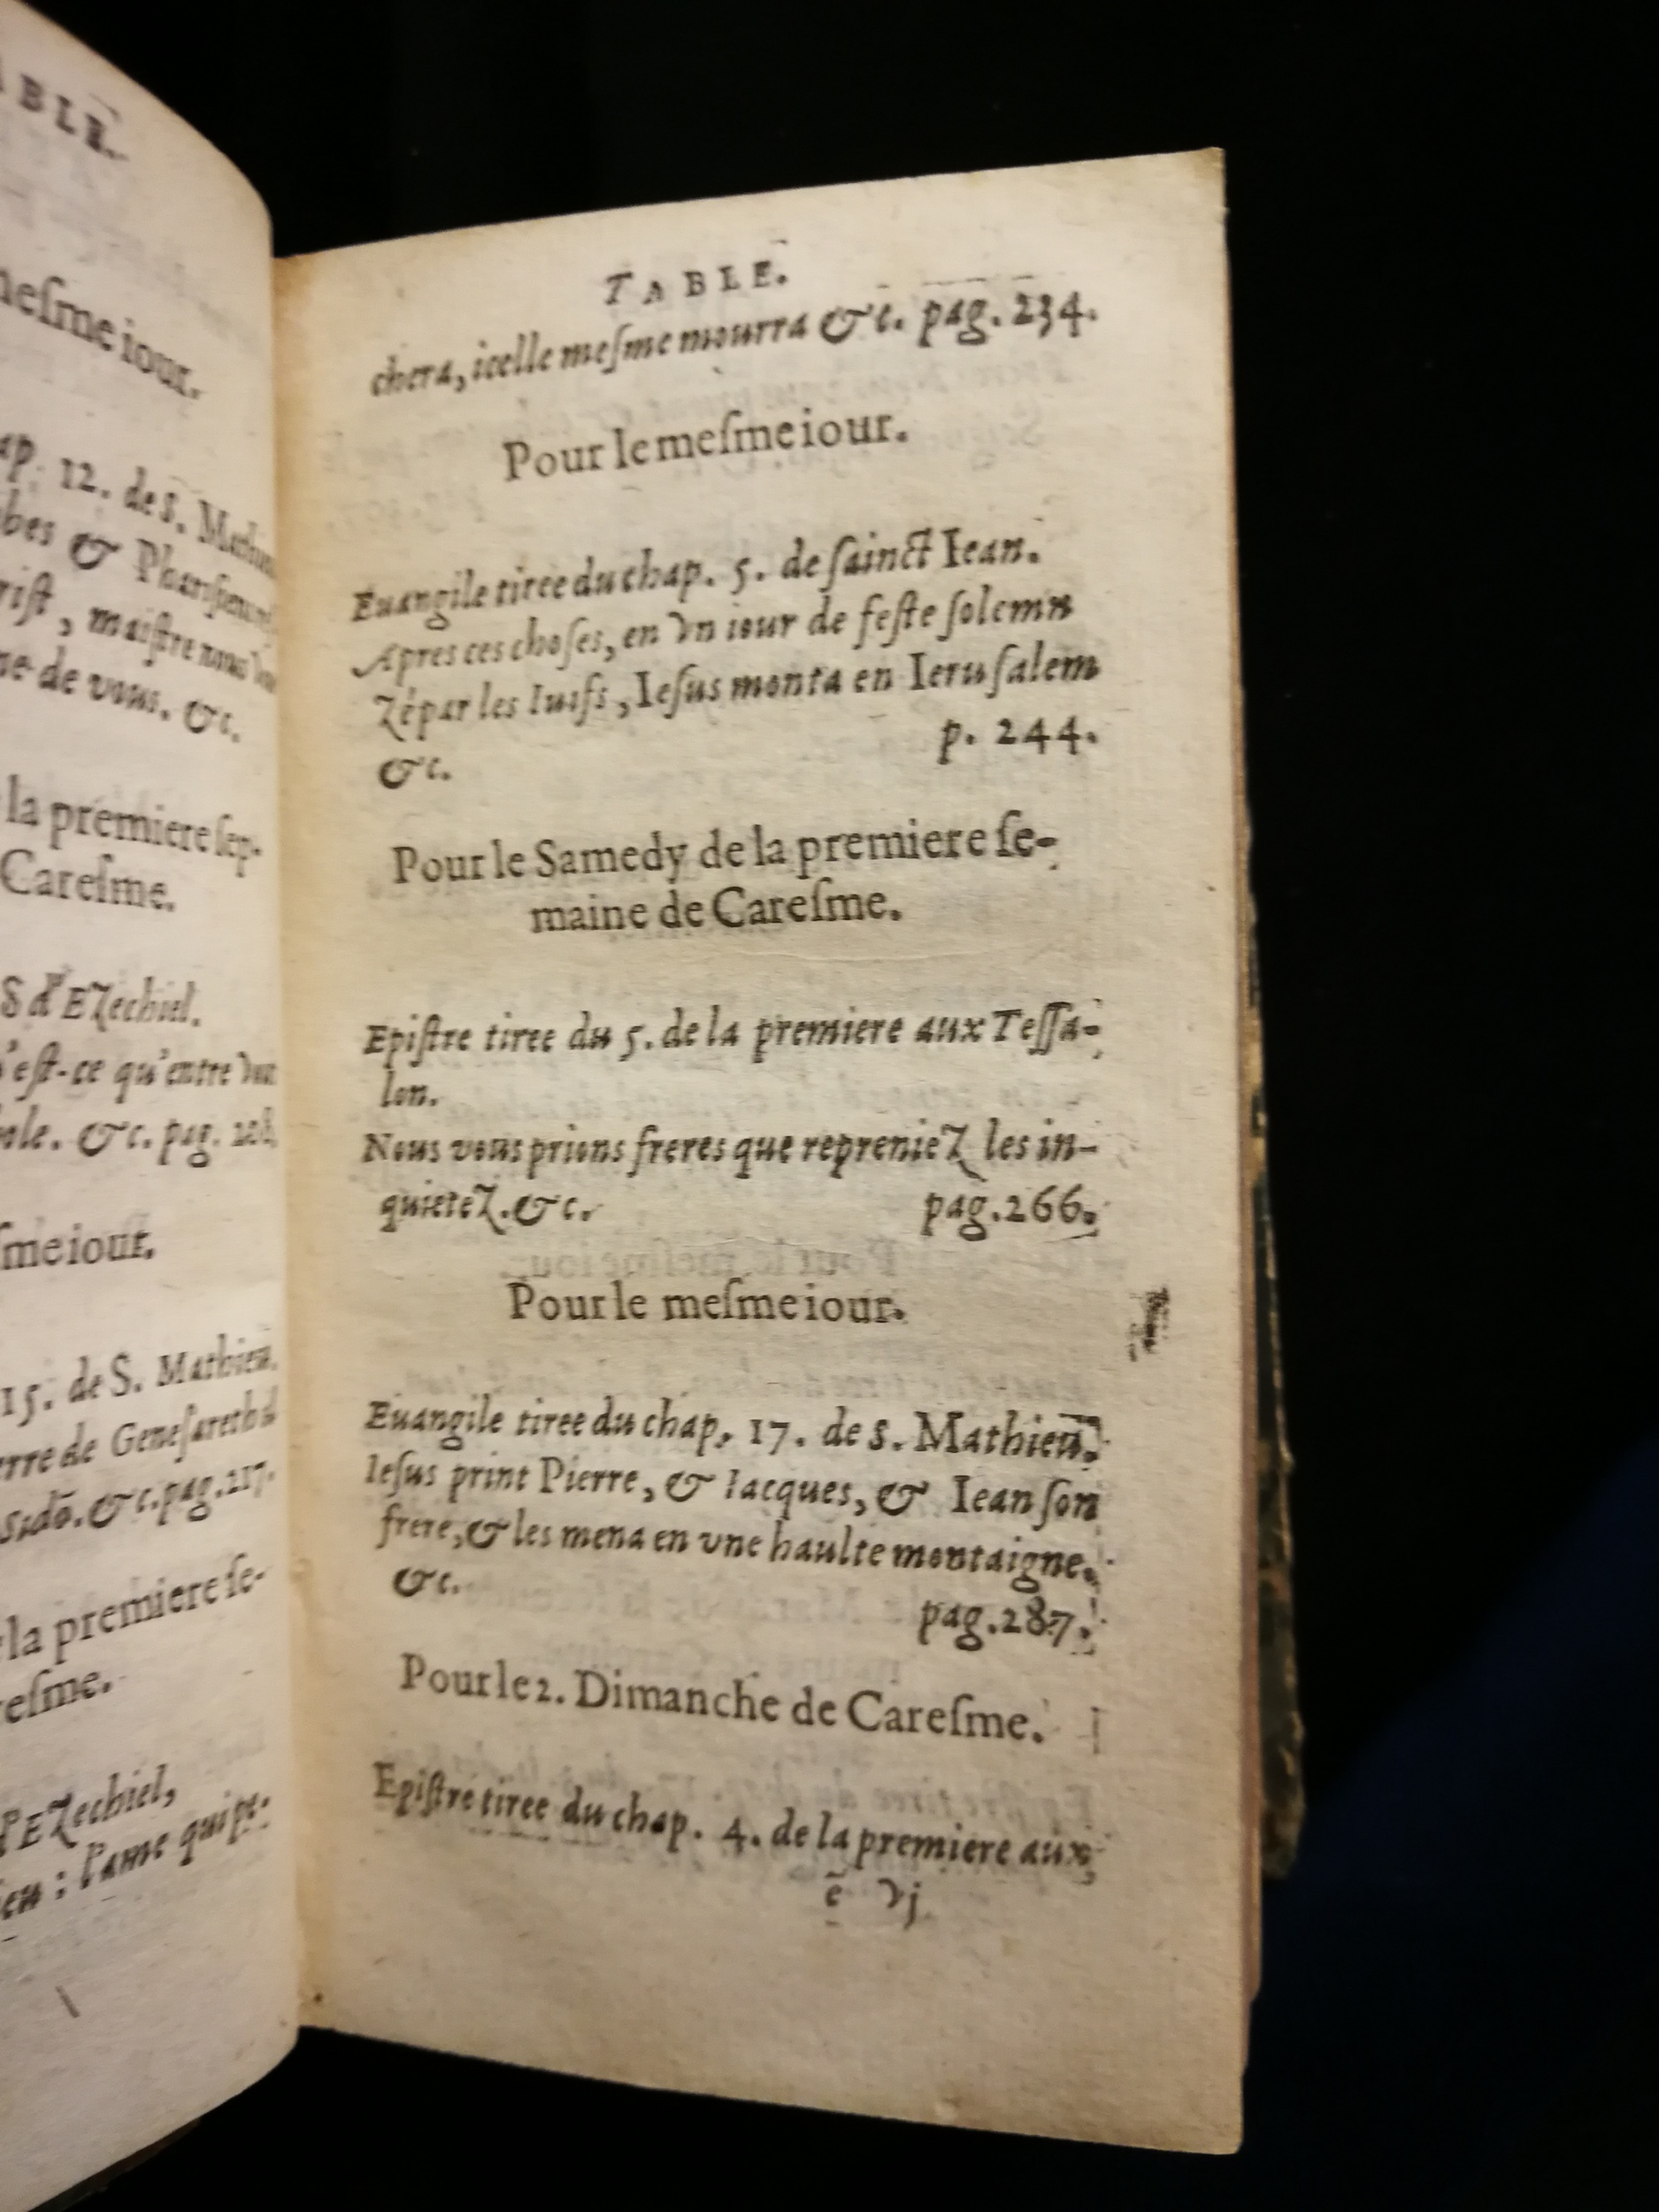 ABLE.
meſme iour.
ap. 12. de S. Mathieu
bes & Phariſiens
riſt, maiſtre nous
ne de vous. &c.
la premiere ſep-
Careſme.
8 d'Ezechiel.
'eſt-ce qu'entre vous
ole. &c. pag. 208.
ſme iour.
15. de S. Mathieu.
erre de Geneſareth
Sidõ. &c. pag. 217.
la premiere ſe-
eſme.
d'Ezechiel,
ieu : l'ame qui pe-
TABLE.
chera, icelle meſme mourra &c. pag. 234.
Pour le meſme iour.
Euangile tiree du chap. 5. de ſainct Iean.
Apres ces choſes, en vn iour de feſte ſolemn
zé par les Iuifs, Ieſus monta en Ieruſalem
&c. p. 244.
Pour le Samedy de la premiere ſe-
maine de Careſme.
Epiſtre tiree du 5. de la premiere aux Teſſa-
lon.
Nous vous prions freres que repreniez les in-
quietez. &c. pag. 266.
Pour le meſme iour.
Euangile tiree du chap. 17. de S. Mathieu.
Ieſus print Pierre, & Iacques, & Iean ſon
frere, & les mena en vne haulte montaigne.
&c. pag. 287.
Pour le 2. Dimanche de Careſme.
Epiſtre tiree du chap. 4. de la premiere aux
ẽ vj